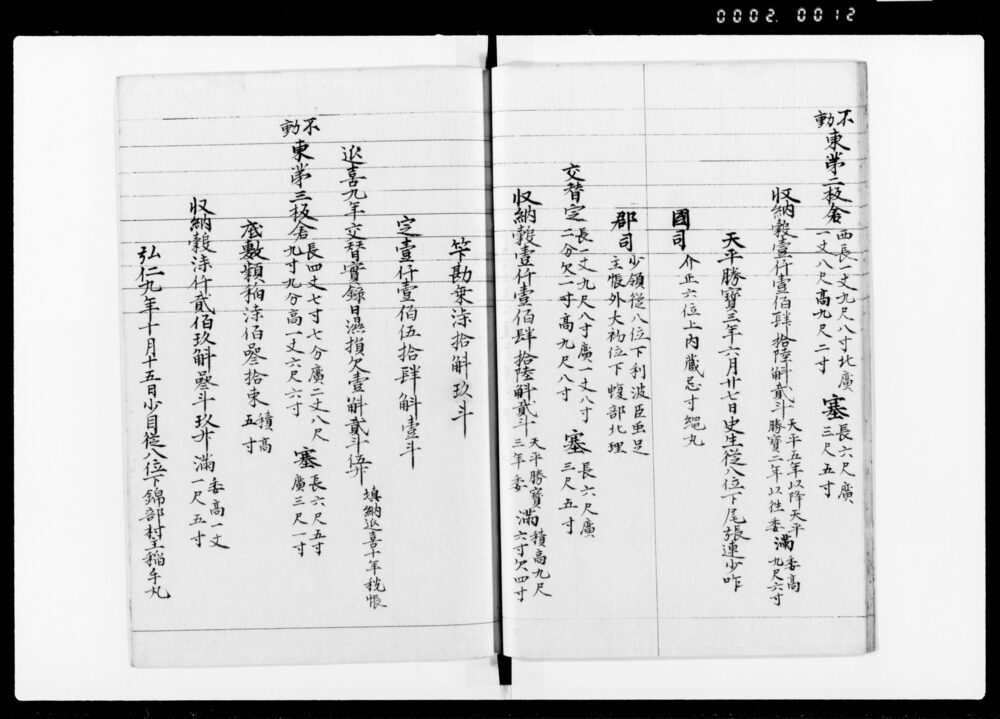 0002. 0012
不動 東第二板倉 西長一丈九尺八寸北廣一丈八尺高九尺二寸 塞長六尺廣三尺五寸
収納穀壹仟壹佰肆拾陸斛貳斗 天平五年以降天平勝寶二年以徃委 滿委高九尺六寸
天平勝寶三年六月廿七日史生従八位下尾張連少咋
國司 介正六位上内蔵忌寸縄丸
郡司 少領従八位下利波臣虫足
主帳外大初位下蝮部北理
交替定 長一丈九尺八寸廣一丈八寸二分欠一寸高九尺八寸 塞長六尺廣三尺五寸
収納穀壹仟壹佰肆拾陸斛貳斗 天平勝寶三年委 滿積高九尺六寸欠四寸
竿勘乗漆拾斛玖斗
定壹仟壹佰伍拾肆斛壹斗
延喜九年交替實録日濕損欠壹斛貳斗伍升 填納延喜十年税帳
不動 東第三板倉 長四丈七寸七分廣二丈八尺九寸九分高一丈六尺六寸 塞長六尺五寸廣三尺一寸
底敷穎稲漆佰叄拾束 積高五寸
収納穀漆仟貳佰玖斛叄斗玖升 滿委高一丈一尺五寸
弘仁九年十月十五日少目従八位下錦部村主稲手丸